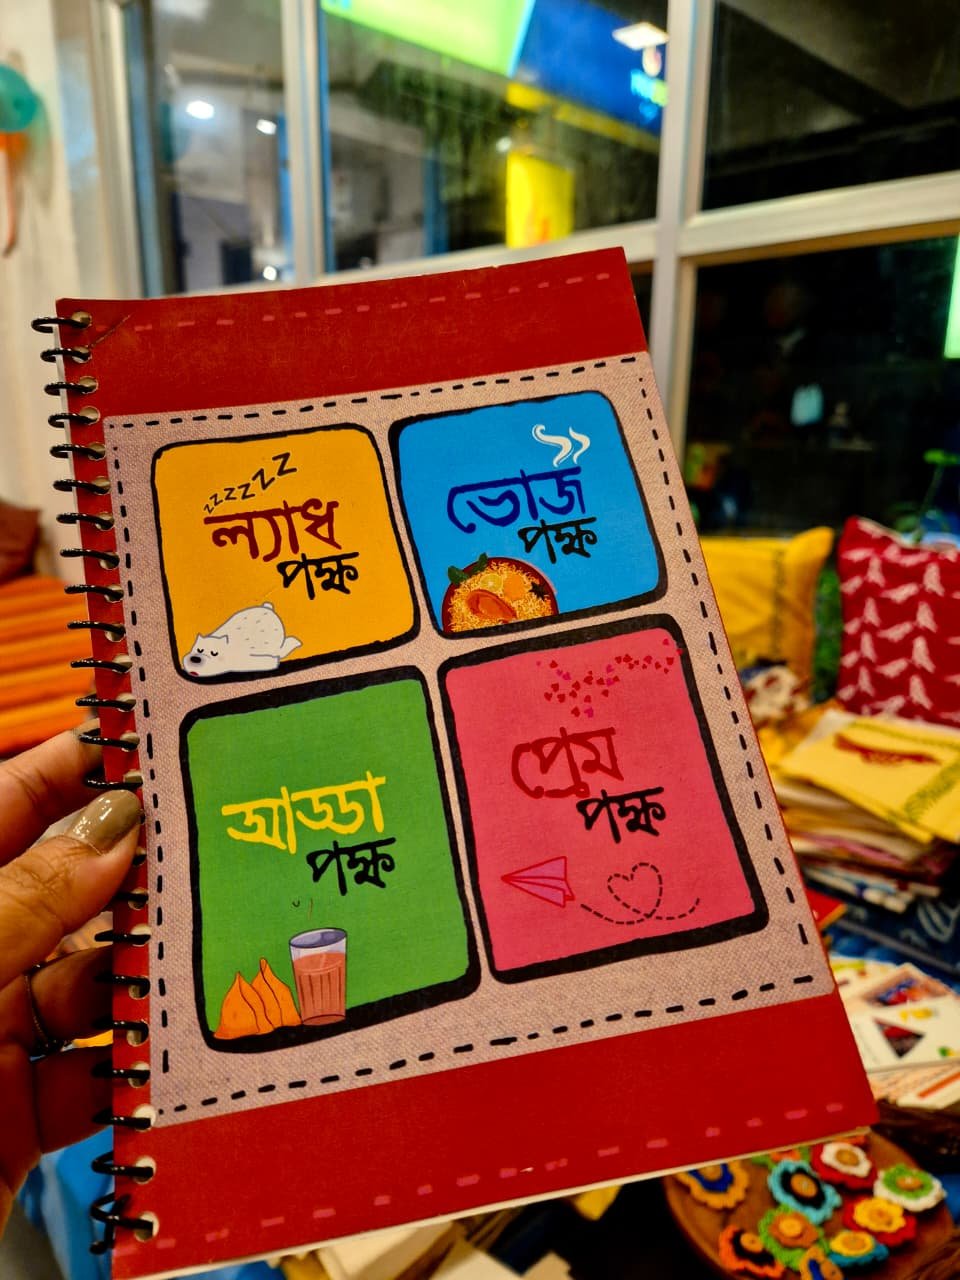 zzzzzz
ল্যাধ
পক্ষ
ভোজ
পক্ষ
আড্ডা
পক্ষ
প্রেম
পক্ষ